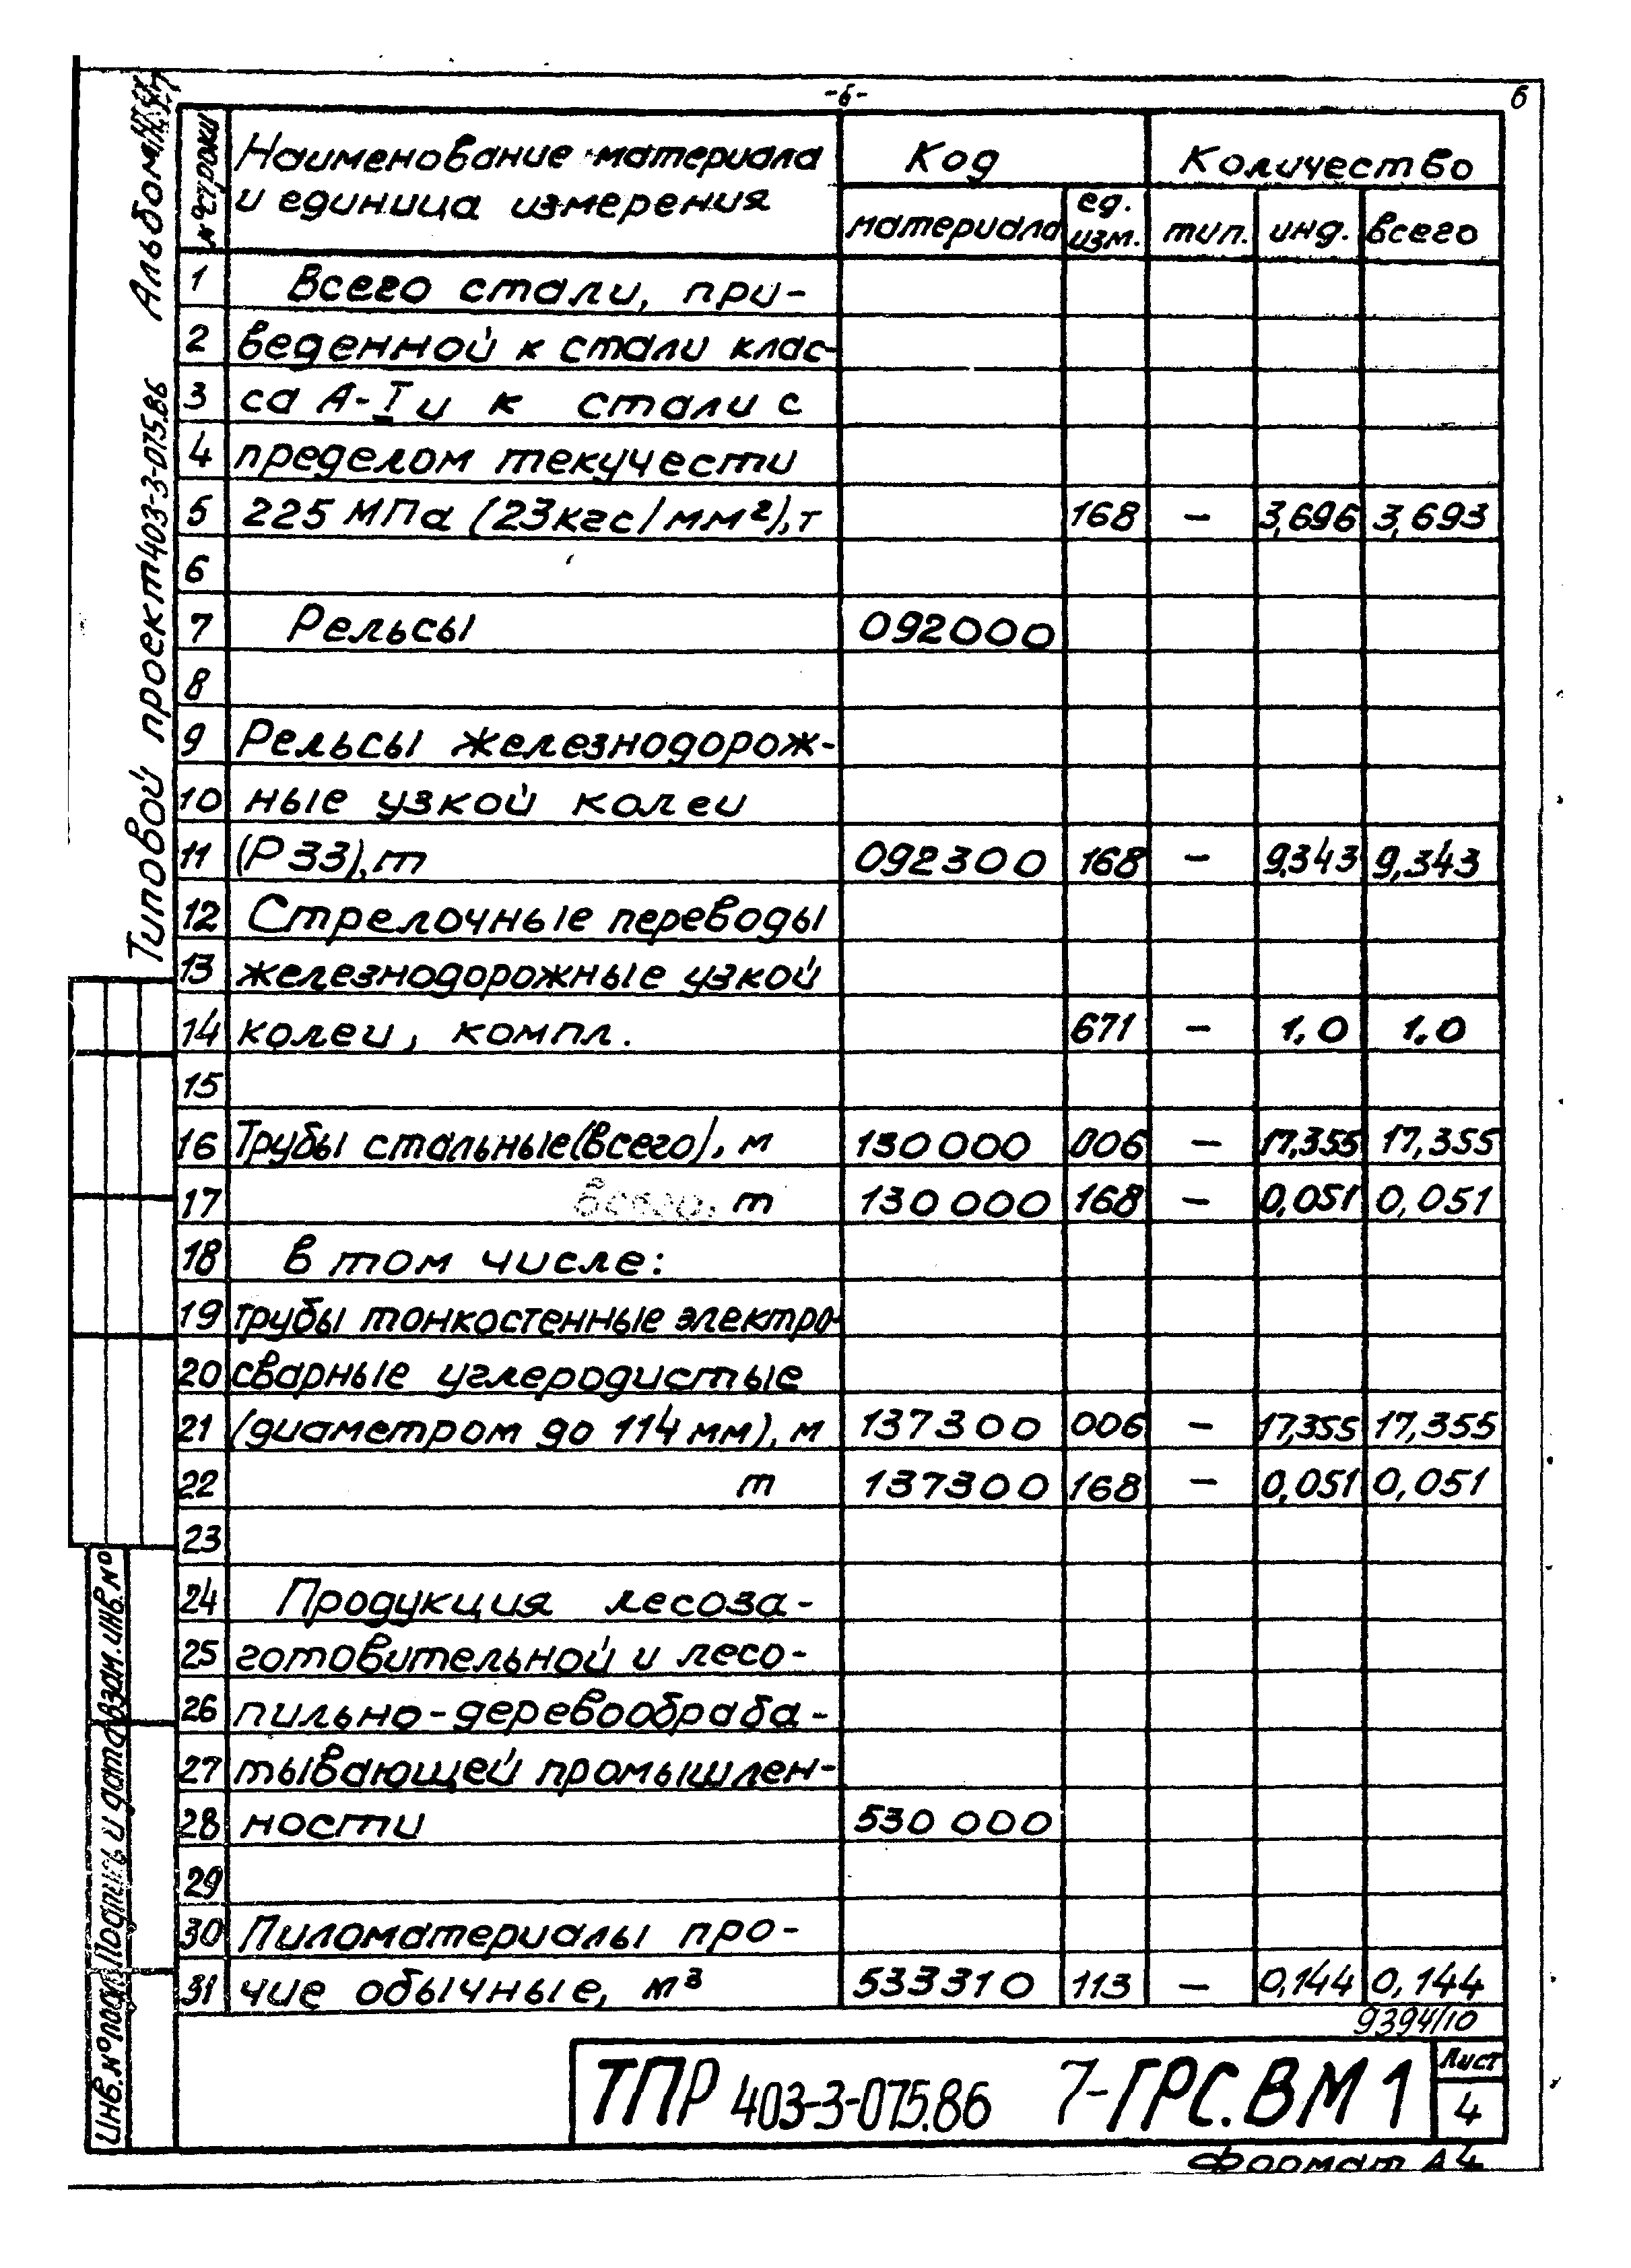 -6-
6
№ строки
Наименование материала
и единица измерения
Код
Количество
материала
ед.
изм.
тип.
инд.
всего
1 Всего стали, при-
2 веденной к стали клас-
3 са А-I и к стали с
4 пределом текучести
5 225 МПа (23кгс/мм²), т 168 - 3,696 3,693
6
7 Рельсы 092000
8
9 Рельсы железнодорож-
10 ные узкой колеи
11 (Р33), т 092300 168 - 9,343 9,343
12 Стрелочные переводы
13 железнодорожные узкой
14 колеи, компл. 671 - 1,0 1,0
15
16 Трубы стальные(всего), м 130000 006 - 17,355 17,355
17 всего, т 130000 168 - 0,051 0,051
18 в том числе:
19 трубы тонкостенные электро-
20 сварные углеродистые
21 (диаметром до 114 мм), м 137300 006 - 17,355 17,355
22 т 137300 168 - 0,051 0,051
23
24 Продукция лесоза-
25 готовительной и лесо-
26 пильно-деревообраба-
27 тывающей промышлен-
28 ности 530 000
29
30 Пиломатериалы про-
31 чие обычные, м³ 533310 113 - 0,144 0,144
9394/10
ТПР 403-3-075.86 7-ГРС.ВМ1
Лист
4
Формат А4
Типовой проект 403-3-075.86 Альбом
Инв.№ подл. Подпись и дата Взам.инв.№